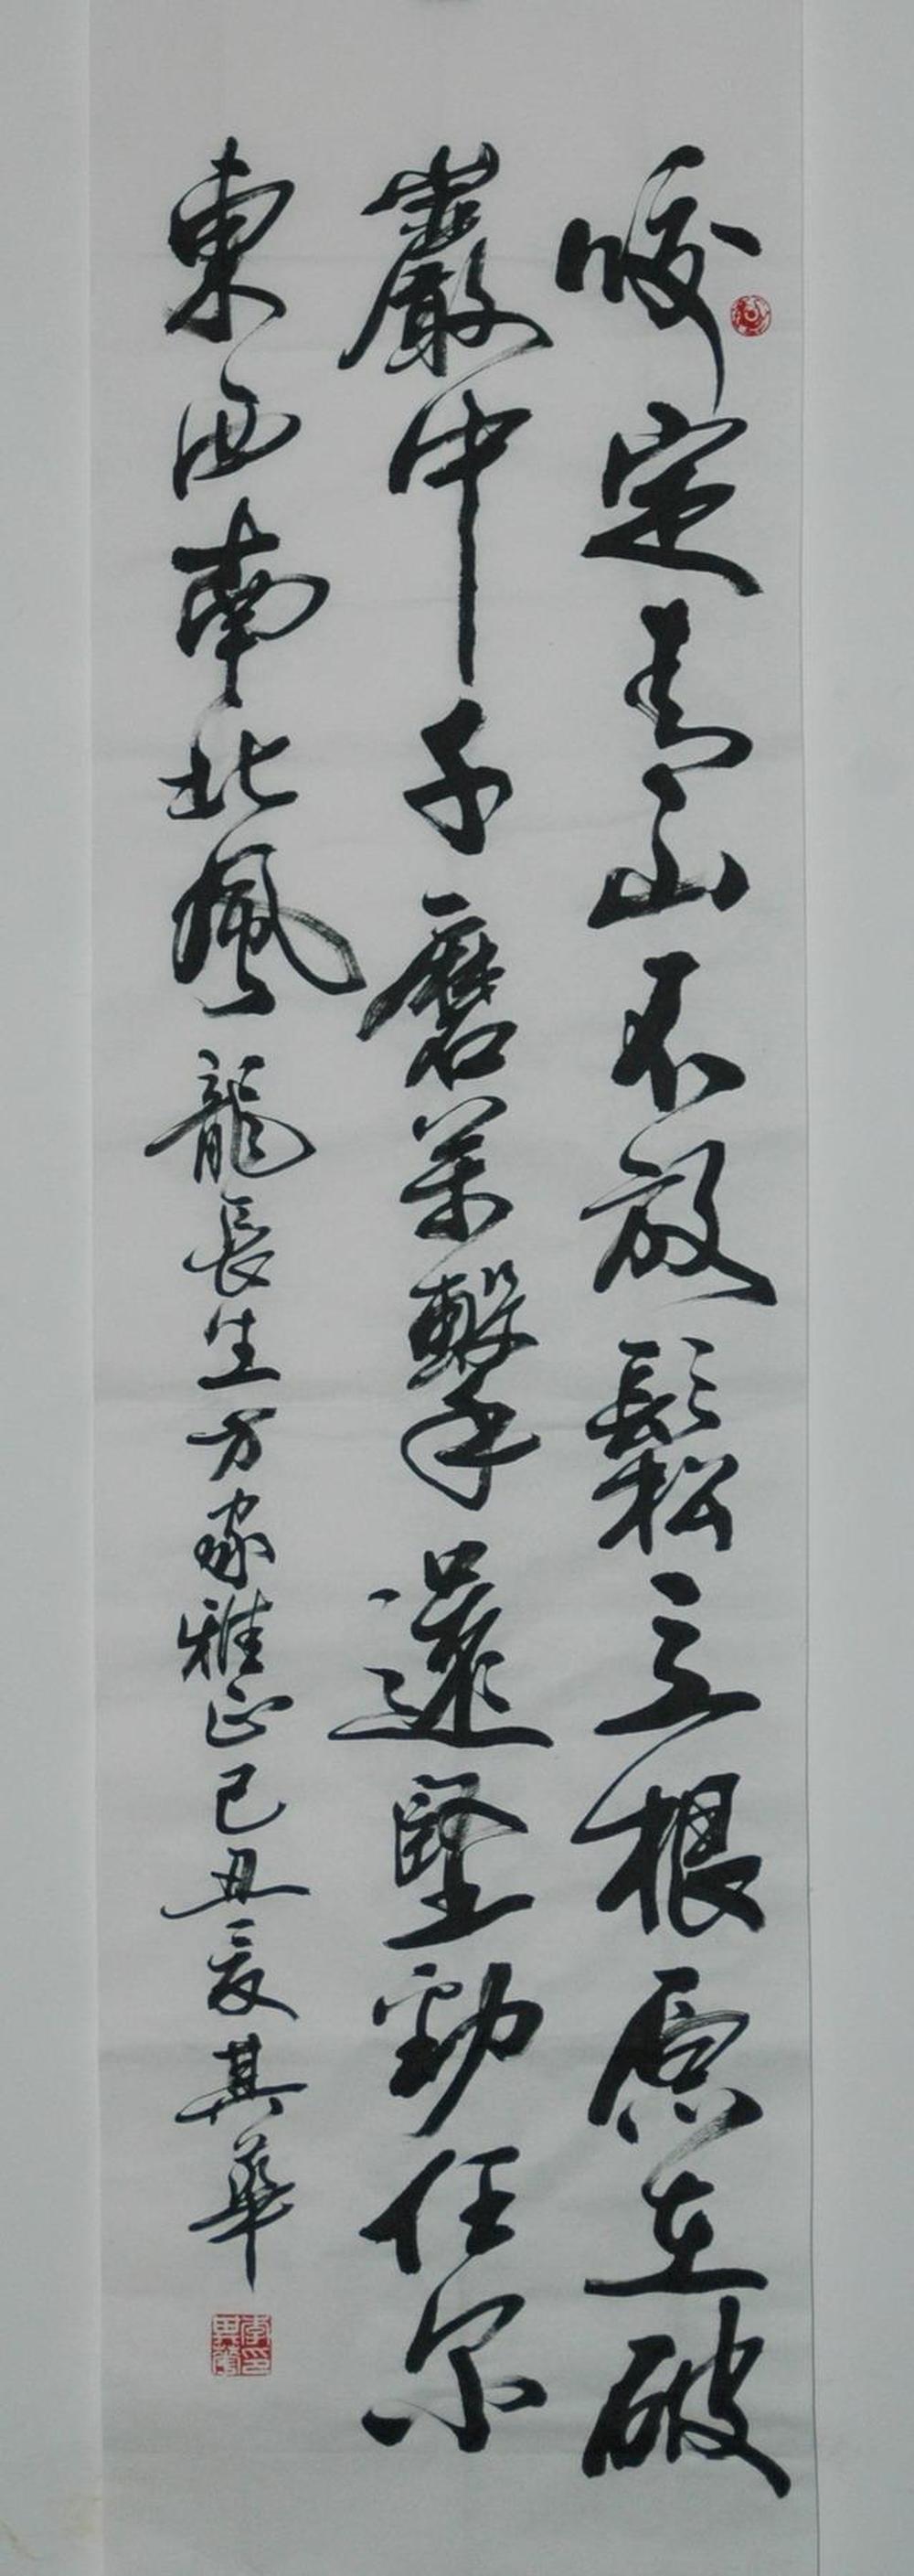 咬定青山不放鬆立根原在破
巖中千磨萬擊還堅勁任尔
東西南北風 龍長生方家雅正己丑夏其華